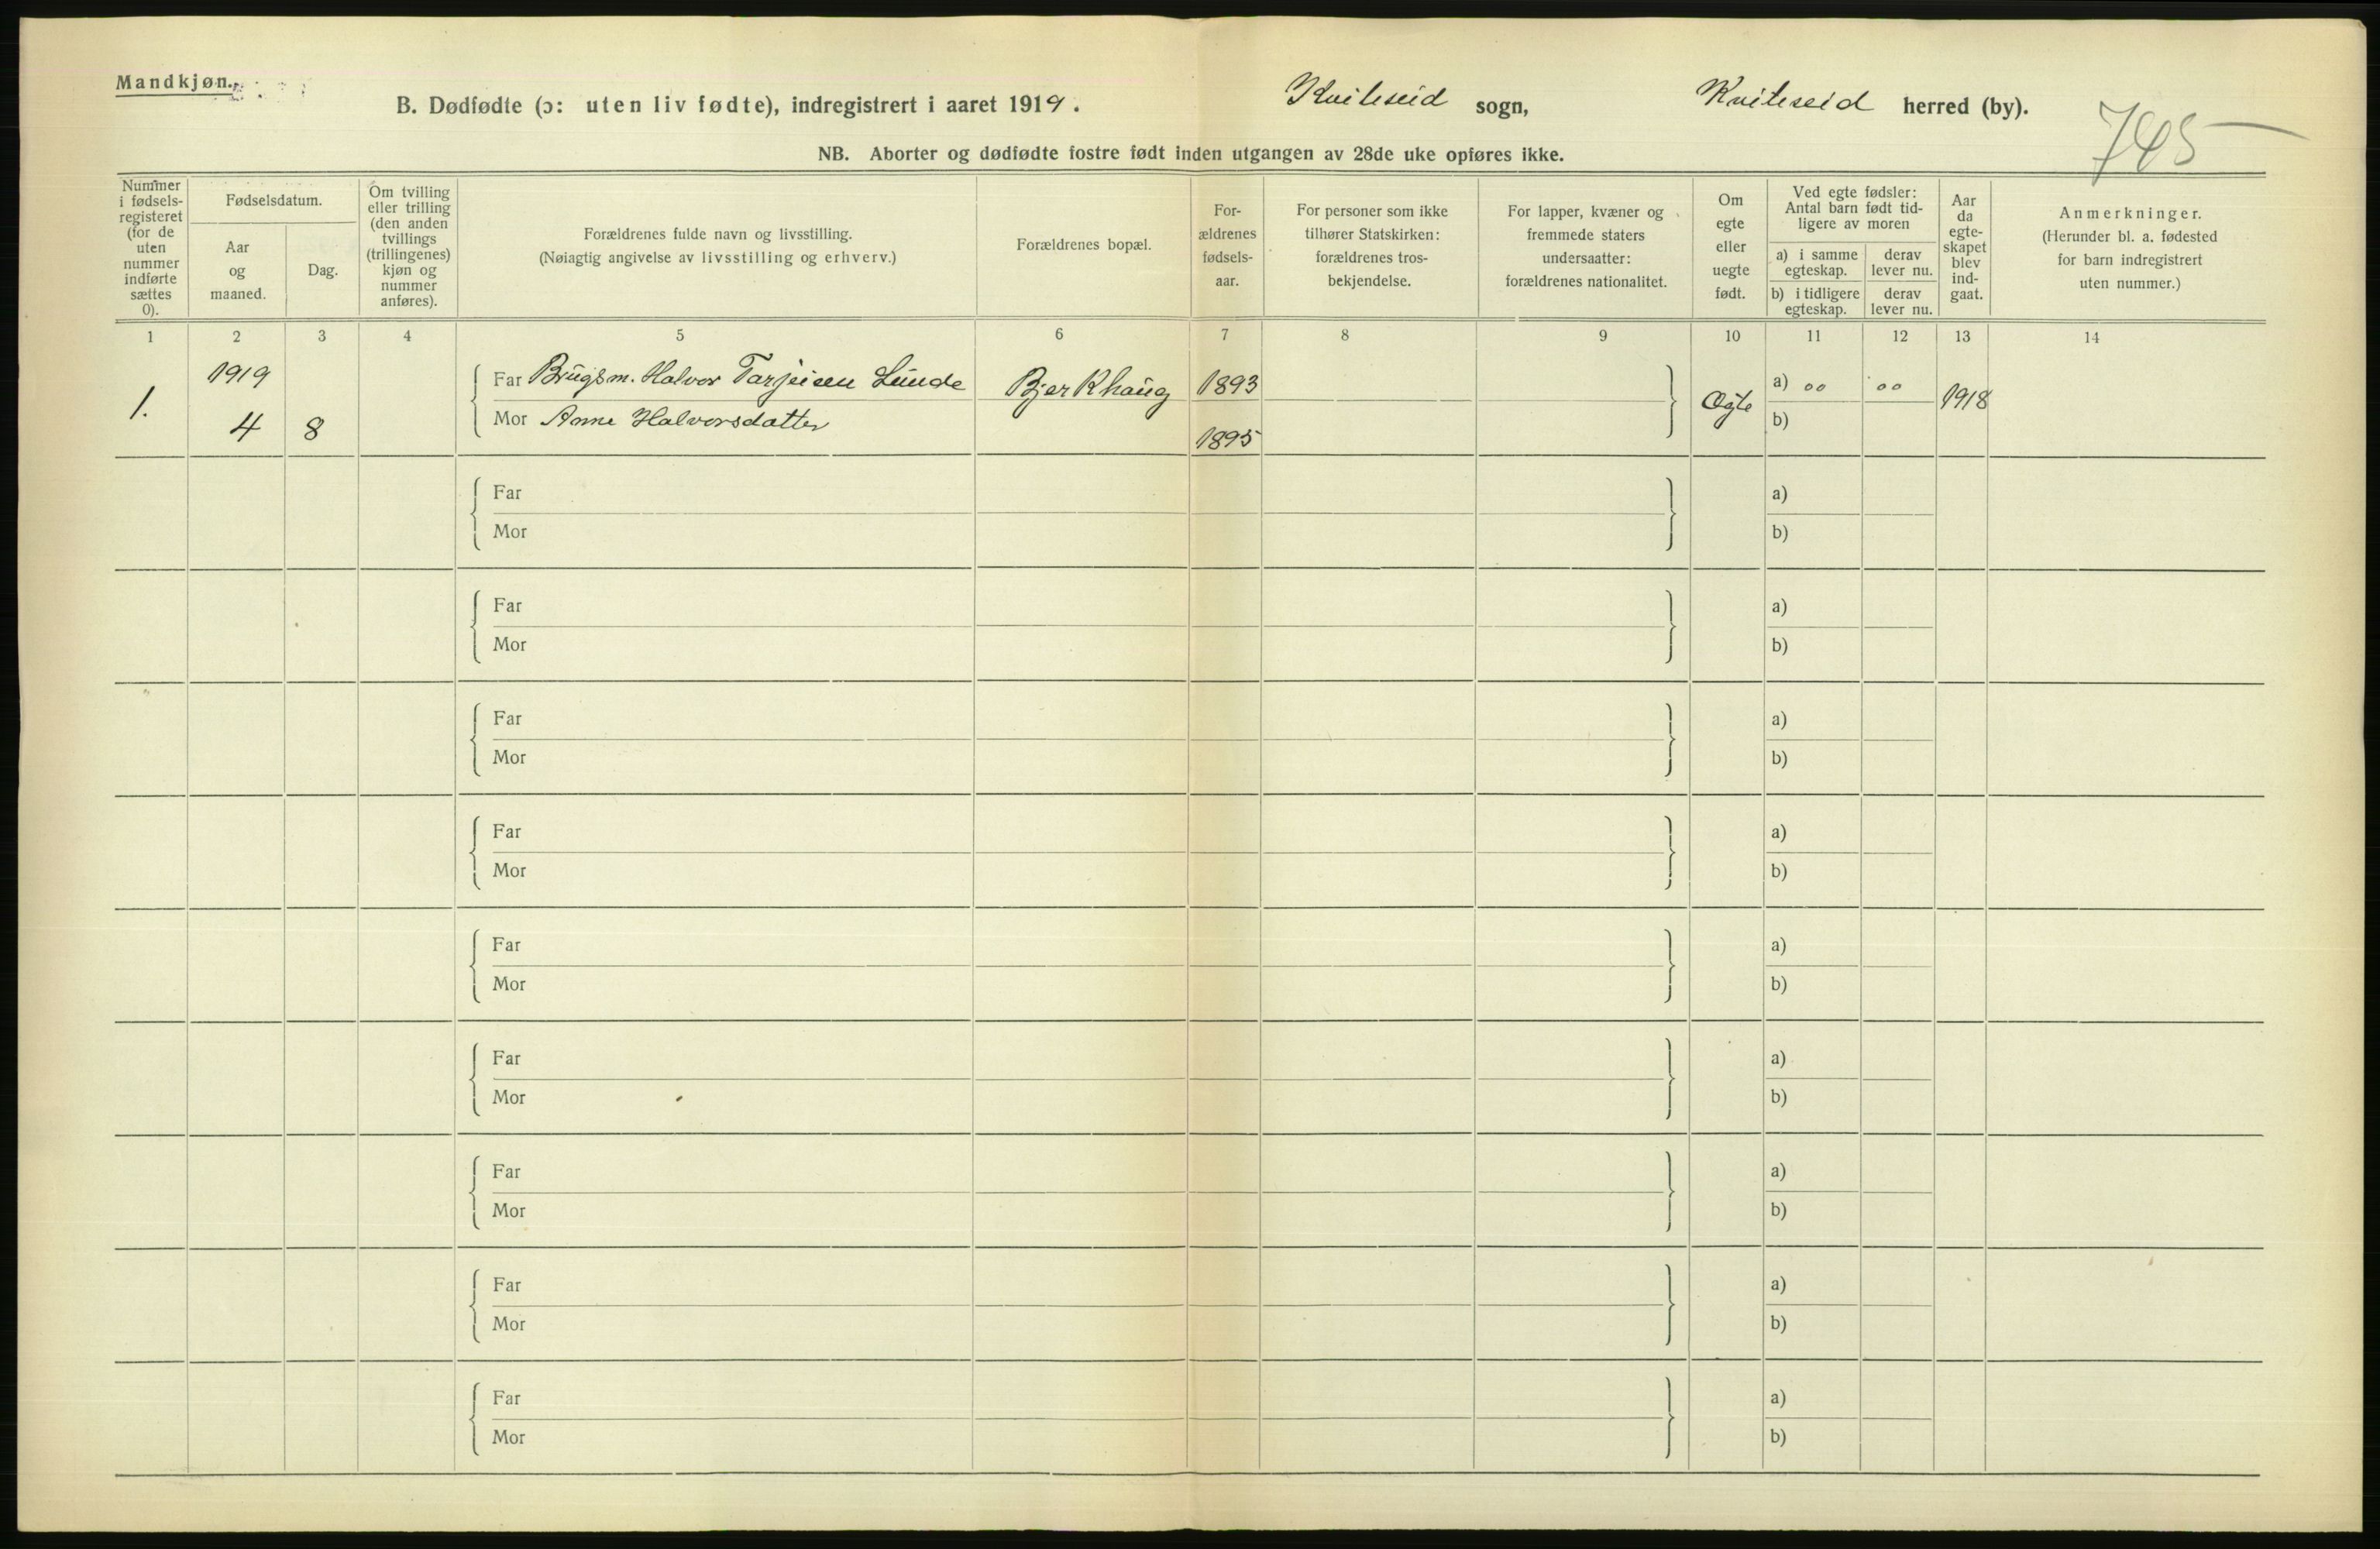 Mandkjøn.
B. Dødfødte (ɔ: uten liv fødte), indregistrert i aaret 1919. Kviteseid sogn, Kviteseid herred (by).
745
NB. Aborter og dødfødte fostre født inden utgangen av 28de uke opføres ikke.
Nummer i fødsels-registeret (for de uten nummer indførte sættes 0).
Fødselsdatum.
Aar og maaned.
Dag.
Om tvilling eller trilling (den anden tvillings (trillingenes) kjøn og nummer anføres).
Forældrenes fulde navn og livsstilling.
(Nøiagtig angivelse av livsstilling og erhverv.)
Forældrenes bopæl.
For-ældrenes fødsels-aar.
For personer som ikke tilhører Statskirken: forældrenes tros-bekjendelse.
For lapper, kvæner og fremmede staters undersaatter: forældrenes nationalitet.
Om egte eller uegte født.
Ved egte fødsler: Antal barn født tid-ligere av moren
a) i samme egteskap.
derav lever nu.
b) i tidligere egteskap.
derav lever nu.
Aar da egte-skapet blev ind-gaat.
Anmerkninger.
(Herunder bl. a. fødested for barn indregistrert uten nummer.)
1 2 3 4 5 6 7 8 9 10 11 12 13 14
1. 1919 4 8
Far Brugsm. Halvor Tarjeisen Lunde Bjerkhaug 1893
Mor Anne Halvorsdatter 1895
Egte a) oo oo 1918
b)
Far a)
Mor b)
Far a)
Mor b)
Far a)
Mor b)
Far a)
Mor b)
Far a)
Mor b)
Far a)
Mor b)
Far a)
Mor b)
Far a)
Mor b)
Far a)
Mor b)